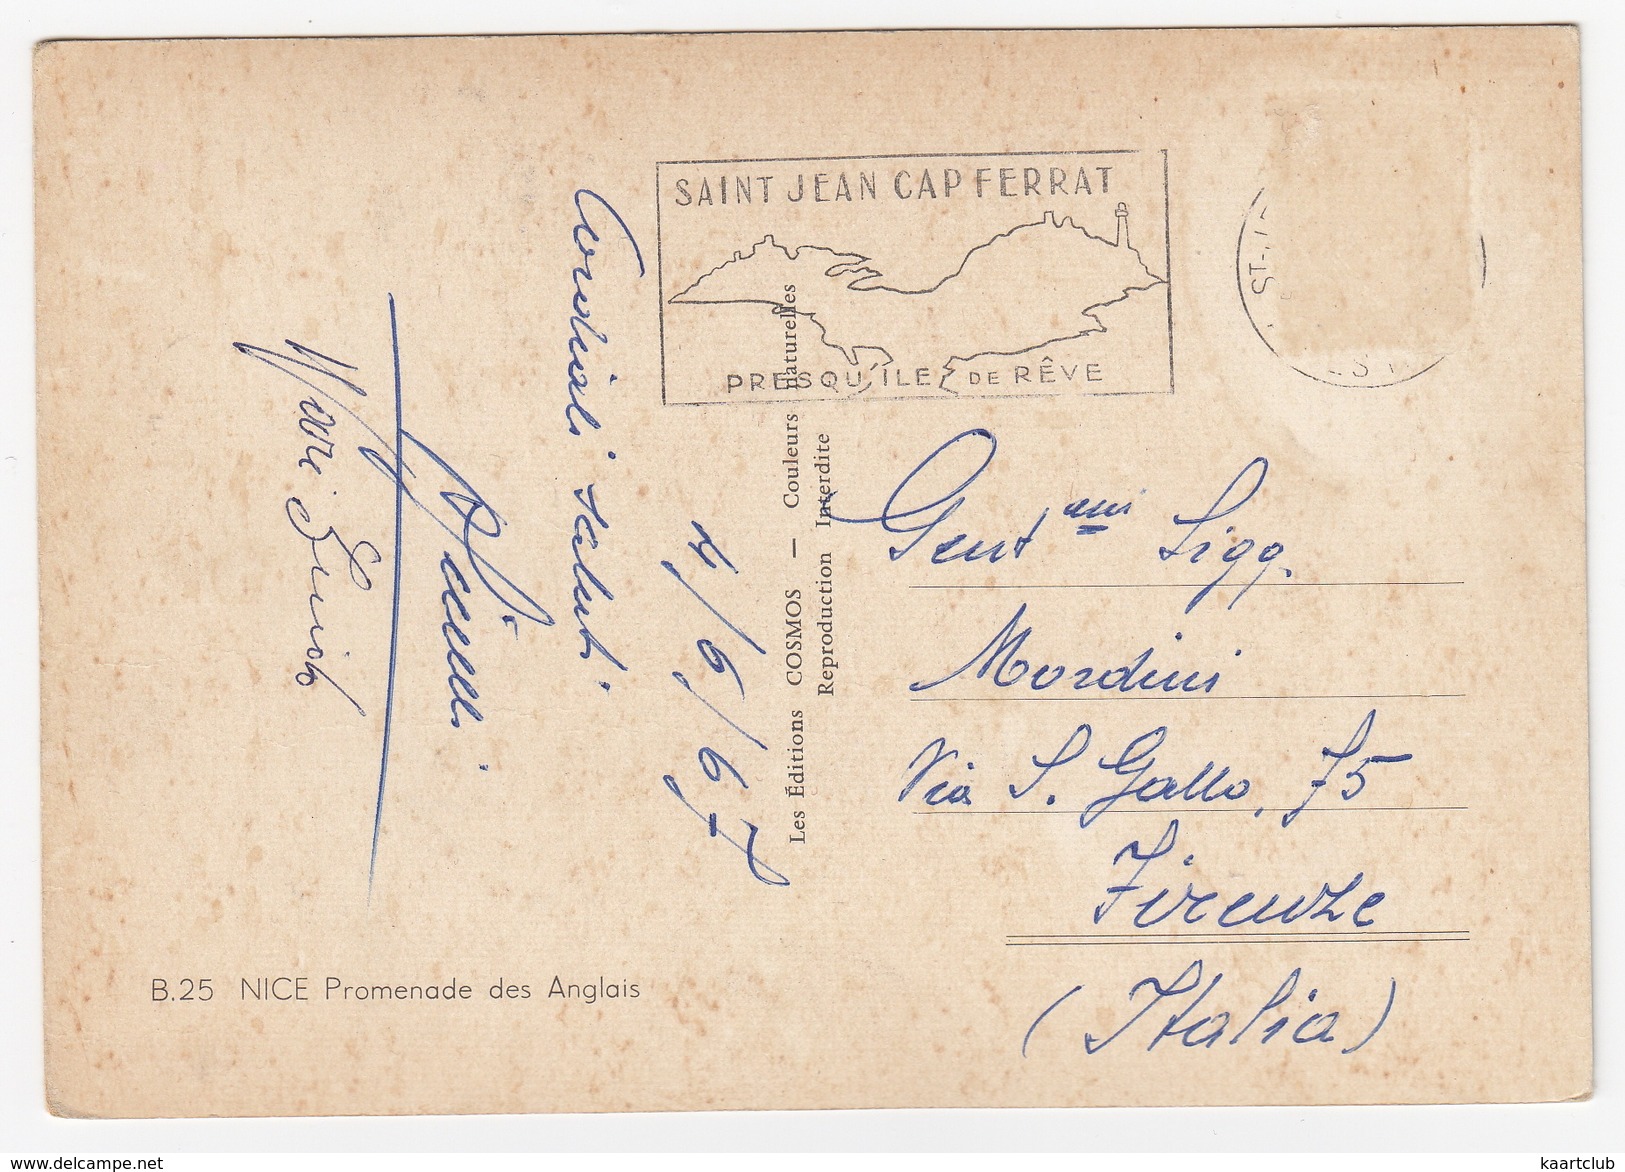 SAINT JEAN CAP FERRAT
PRESQU'ILE DE RÊVE
ST-J
Cordiali saluti
4/6/67
Les Éditions COSMOS — Couleurs naturelles
Reproduction Interdite
Gent.mi Sigg.
Mordini
Via S. Gallo, 75
Firenze
(Italia)
B.25 NICE Promenade des Anglais
www.delcampe.net
kaartclub